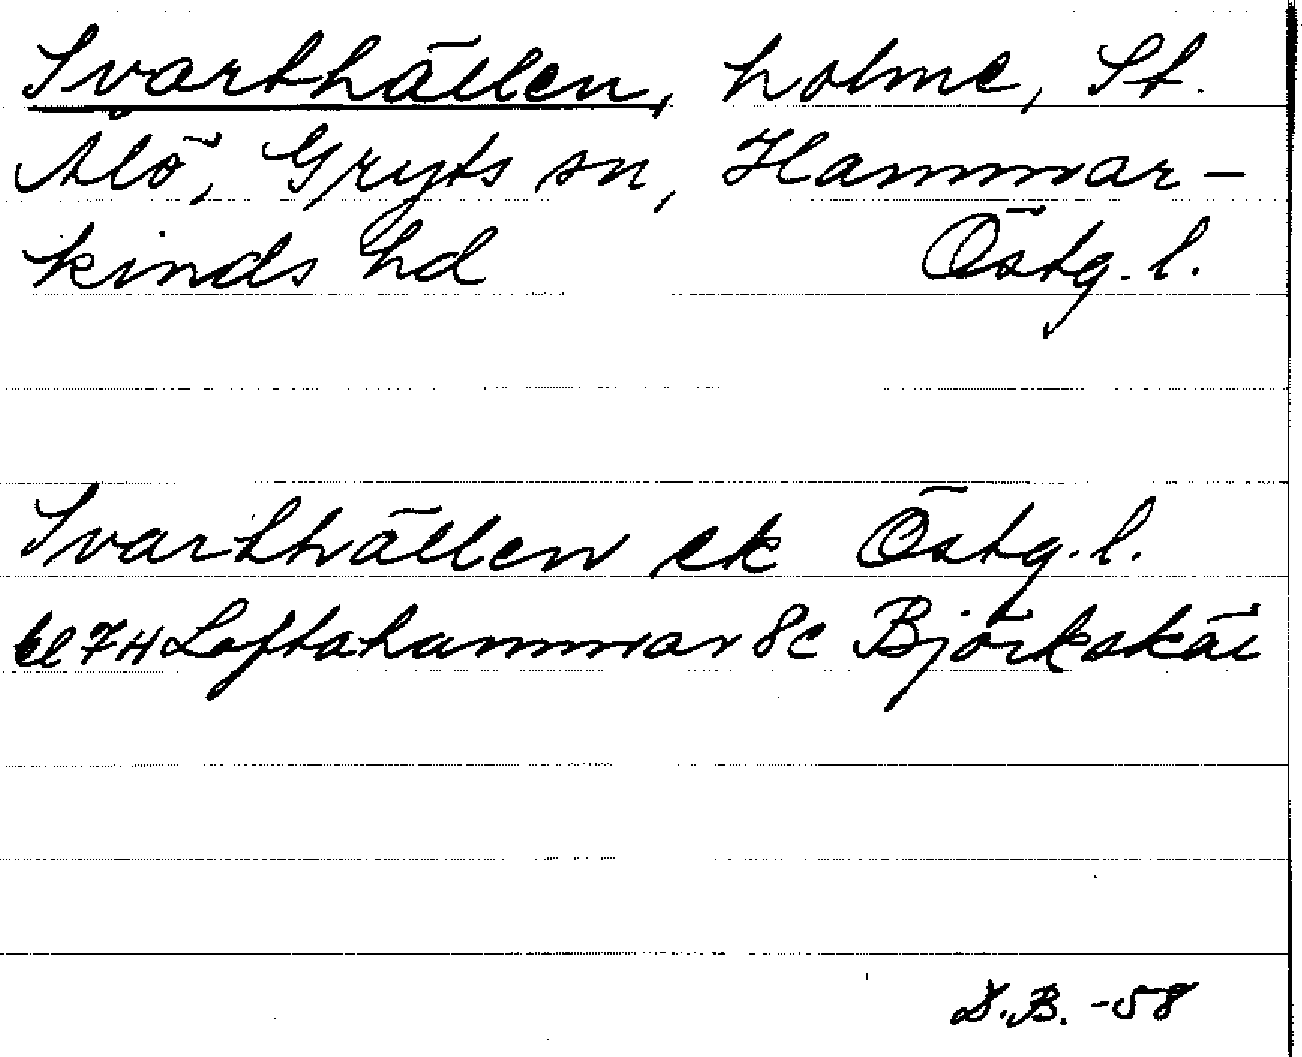 Svarthällen, holme, St.
Ålö, Gryts sn, Hammar-
kinds hd Östg. l.
Svarthällen ek Östg. l.
bl 7H Loftahammar 8c Björkskär
D.B. -58